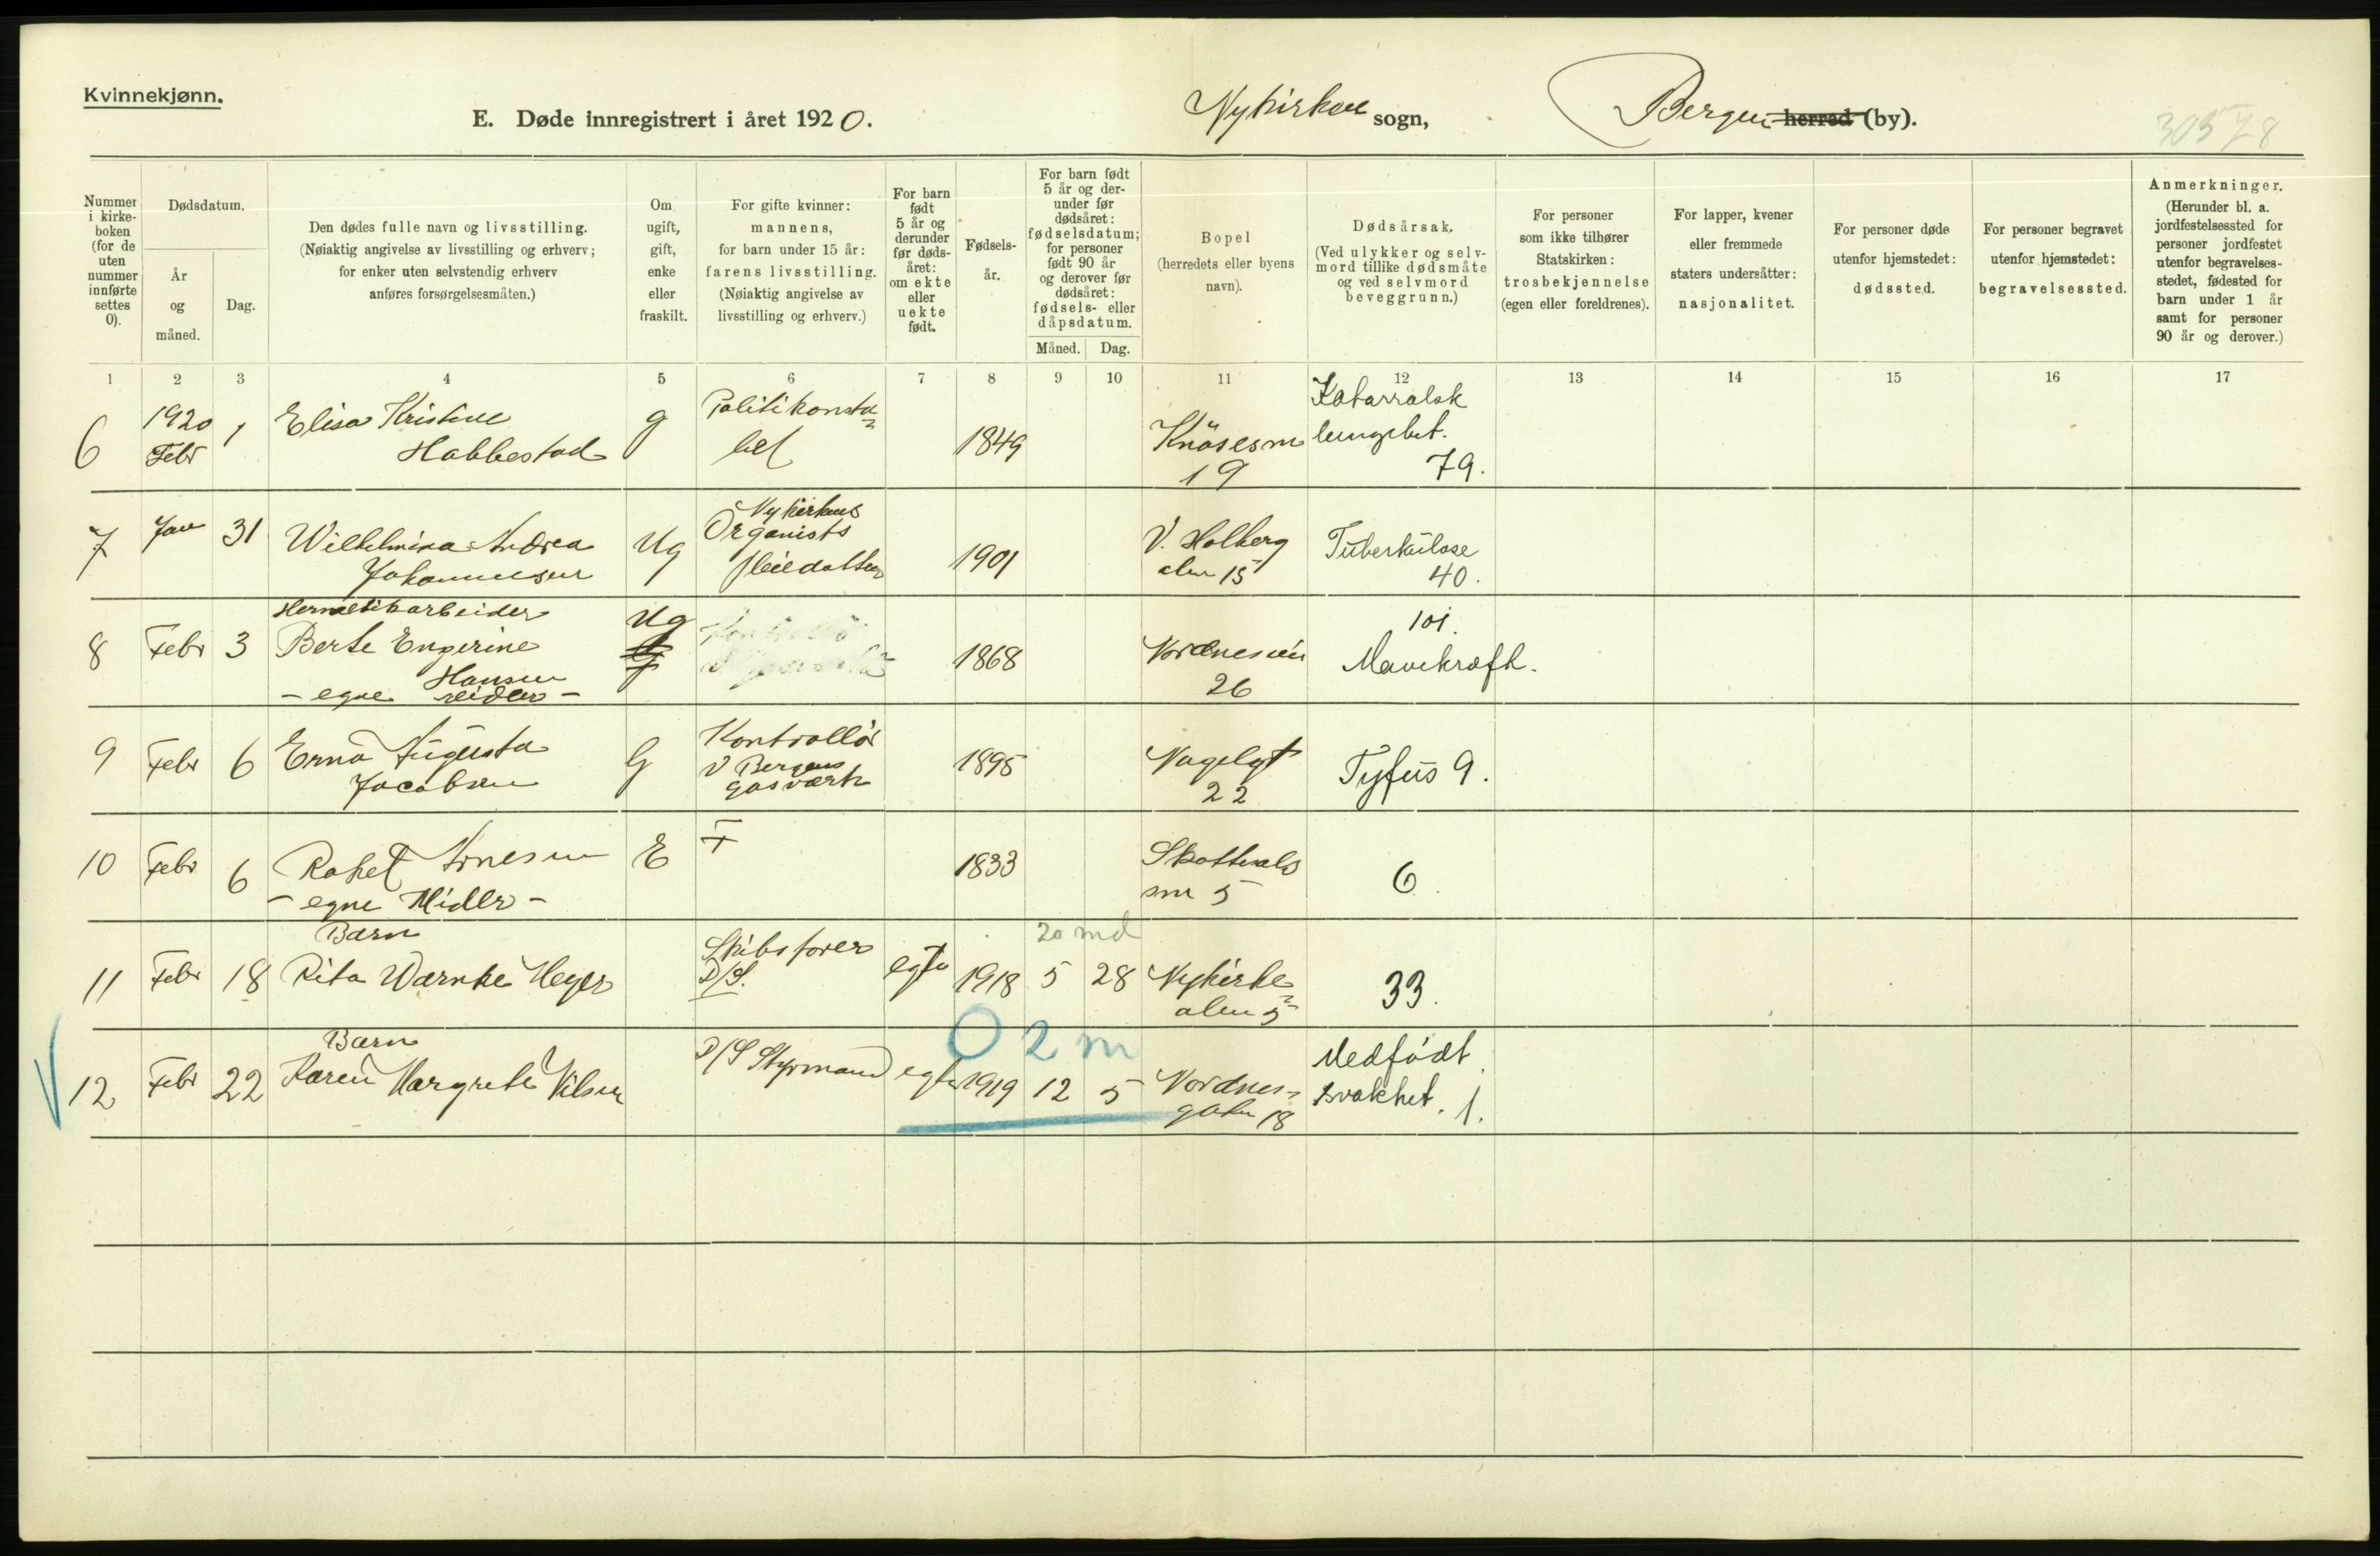 Kvinnekjønn.
E. Døde innregistrert i året 1920.
Nykirken sogn,
Bergen herred (by).
30578
Nummer i kirkeboken (for de uten nummer innførte settes 0).
Dødsdatum.
År og måned.
Dag.
Den dødes fulle navn og livsstilling.
(Nøiaktig angivelse av livsstilling og erhverv;
for enker uten selvstendig erhverv
anføres forsørgelsesmåten.)
Om ugift, gift, enke eller fraskilt.
For gifte kvinner:
mannens,
for barn under 15 år:
farens livsstilling.
(Nøiaktig angivelse av
livsstilling og erhverv.)
For barn født 5 år og derunder før dødsåret: om ekte eller uekte født.
Fødselsår.
For barn født 5 år og derunder før dødsåret: fødselsdatum; for personer født 90 år og derover før dødsåret: fødsels- eller dåpsdatum.
Måned.
Dag.
Bopel
(herredets eller byens
navn).
Dødsårsak.
(Ved ulykker og selvmord tillike dødsmåte
og ved selvmord
beveggrunn.)
For personer
som ikke tilhører
Statskirken:
trosbekjennelse
(egen eller foreldrenes).
For lapper, kvener
eller fremmede
staters undersåtter:
nasjonalitet.
For personer døde
utenfor hjemstedet:
dødssted.
For personer begravet
utenfor hjemstedet:
begravelsessted.
Anmerkninger.
(Herunder bl. a.
jordfestelsessted for
personer jordfestet
utenfor begravelses-
stedet, fødested for
barn under 1 år
samt for personer
90 år og derover.)
1 2 3 4 5 6 7 8 9 10 11 12 13 14 15 16 17
6 1920 Febr 1 Elisa Kristine Habbestad g Politikonstabel 1849 Knösesm 19 Katarralsk lungebet. 79.
7 Jan 31 Wilhelmina Andrea Johannesen Ug Nykirkens Organists 1901 V. Holberg alm 15 Tuberkulose 40.
8 Febr 3 Hermetikarbeider Berte Engerine Hansen - egne midler - Ug 1868 Nordnesvei 26 101. Mavekræft.
9 Febr 6 Erna Augusta Jacobsen G Kontrollör v Bergens gasværk 1895 Nagelgt 22 Tyfus 9.
10 Febr 6 Rakel Arnesen - egne Midler - E 1833 Skottesals sm 5 6.
11 Febr 18 Barn Rita Warnke Heyer Skibsfører D/S. egte 20 md 1918 5 28 Nykirke alm 5 33.
12 Febr 22 Barn Karen Margrete Nilsen D/S Styrmand egte 0 2 m 1919 12 5 Nordnes- gaten 18 Medfödt svakhet. 1.